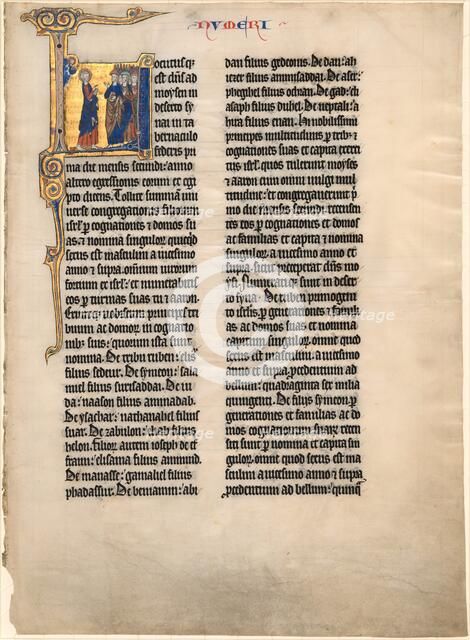 NUMERI
ocutusq
est dn̄s ad
moysen in
deserto sy
nai in ta
bernaculo
federis pri
ma die mensis secundi: anno
altero egressionis eorum ex egi
pto dicens. Tollite summam uni
uerse congregationis filiorum
isrl' p cognationes & domos su
as, & nomina singulorum quicqd
sexus est masculini a uicesimo
anno & supra. omnium uirorum
fortium ex isrl'. et numerabitis
eos p turmas suas tu & aaron.
bium ac domorum in cognatio
nibus suis: quorum ista sunt
nomina. De tribu ruben: elis
filius sedeur. De symeon: sala
miel filius surisaddai. De iu
da: naason filius aminadab.
De ysachar: nathanahel filius
suar. De zabulon: eliab filius
helon. filiorum autem ioseph de ef
fraim: elisama filius ammiud.
De manasse: gamaliel filius
phadassur. De beniamin: abi
dan filius gedeonis. De dan: ahi
ezer filius amisaddai. De aser:
phegiel filius ochran. De gad: eli
asaph filius duhel. De neptali: a
hira filius enan. Hi nobilissimi
principes multitudinis p trib' &
cognationes suas et capita exerci
tus isrl'. quos tulerunt moyses
& aaron cum omni uulgi mul
titudine: et congregauerunt p
mo die mensis secundi. recensen
tes eos p cognationes et domos
ac familias et capita & nomina
singulorum. a uicesimo anno et
supra. sicut preceperat dn̄s moy
si. Numeratiq sunt in deser
to synai. De ruben primogeni
to isrlis. p generationes & famili
as, ac domos suas et nomina
capitum singulorum. omne quod
sexus est masculini. a uicesimo
anno et supra. pcedentium ad
bellum: quadraginta sex milia
quingenti. De filiis symeon. p
generationes et familias ac do
mos cognationum suarum. recen
siti sunt p nomina et capita sin
gulorum. omne quod sexus est ma
sculini a uicesimo anno & supra
pcedentium ad bellum: quinq